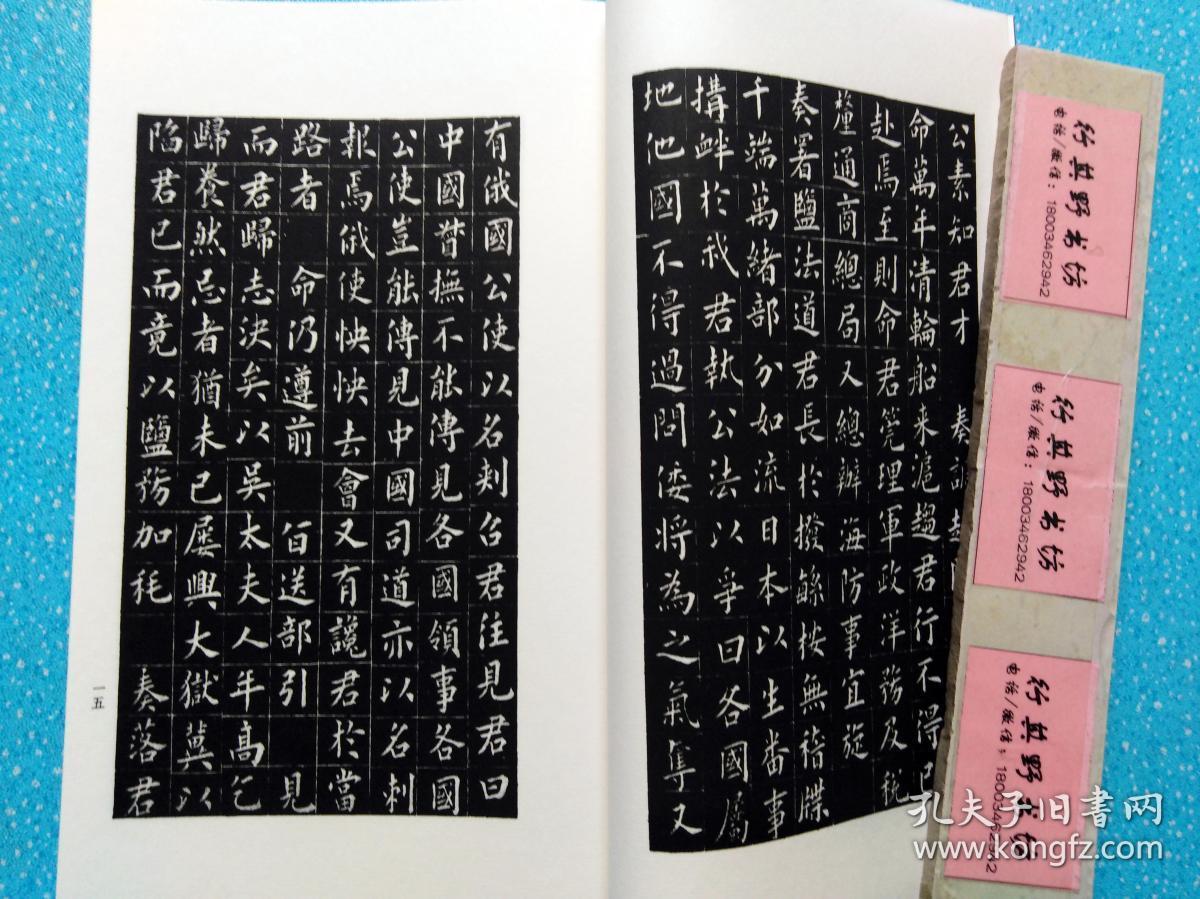 公素知君才 奏
命萬年清輪船来滬趨君行不得已
赴焉至則命君筦理軍政洋務及税
釐通商總局又總辦 海防事宜旋
奏署鹽法道君長於撥繇案無稽牒
千端萬緒部分如流日本以生番事
搆衅於我君執公法以爭曰各國屬
地他國不得過問倭將為之氣隼又
有俄國公使以名刺召君往見君曰
中國督撫不能傳見各國領事各國
公使豈能傳見中國司道亦以名刺
報焉俄使怏怏去會又有讒君於當
路者 命仍遵前 旨送部引 見
而君歸志決矣以吳太夫人年高乞
歸養然忌者猶未已屡興大獄冀以
陷君已而竟以鹽務加耗 奏落君
一五
行與野书坊
电话/微信：18003462942
行與野书坊
电话/微信：18003462942
行與野书坊
电话/微信：18003462942
孔夫子旧书网
www.kongfz.com